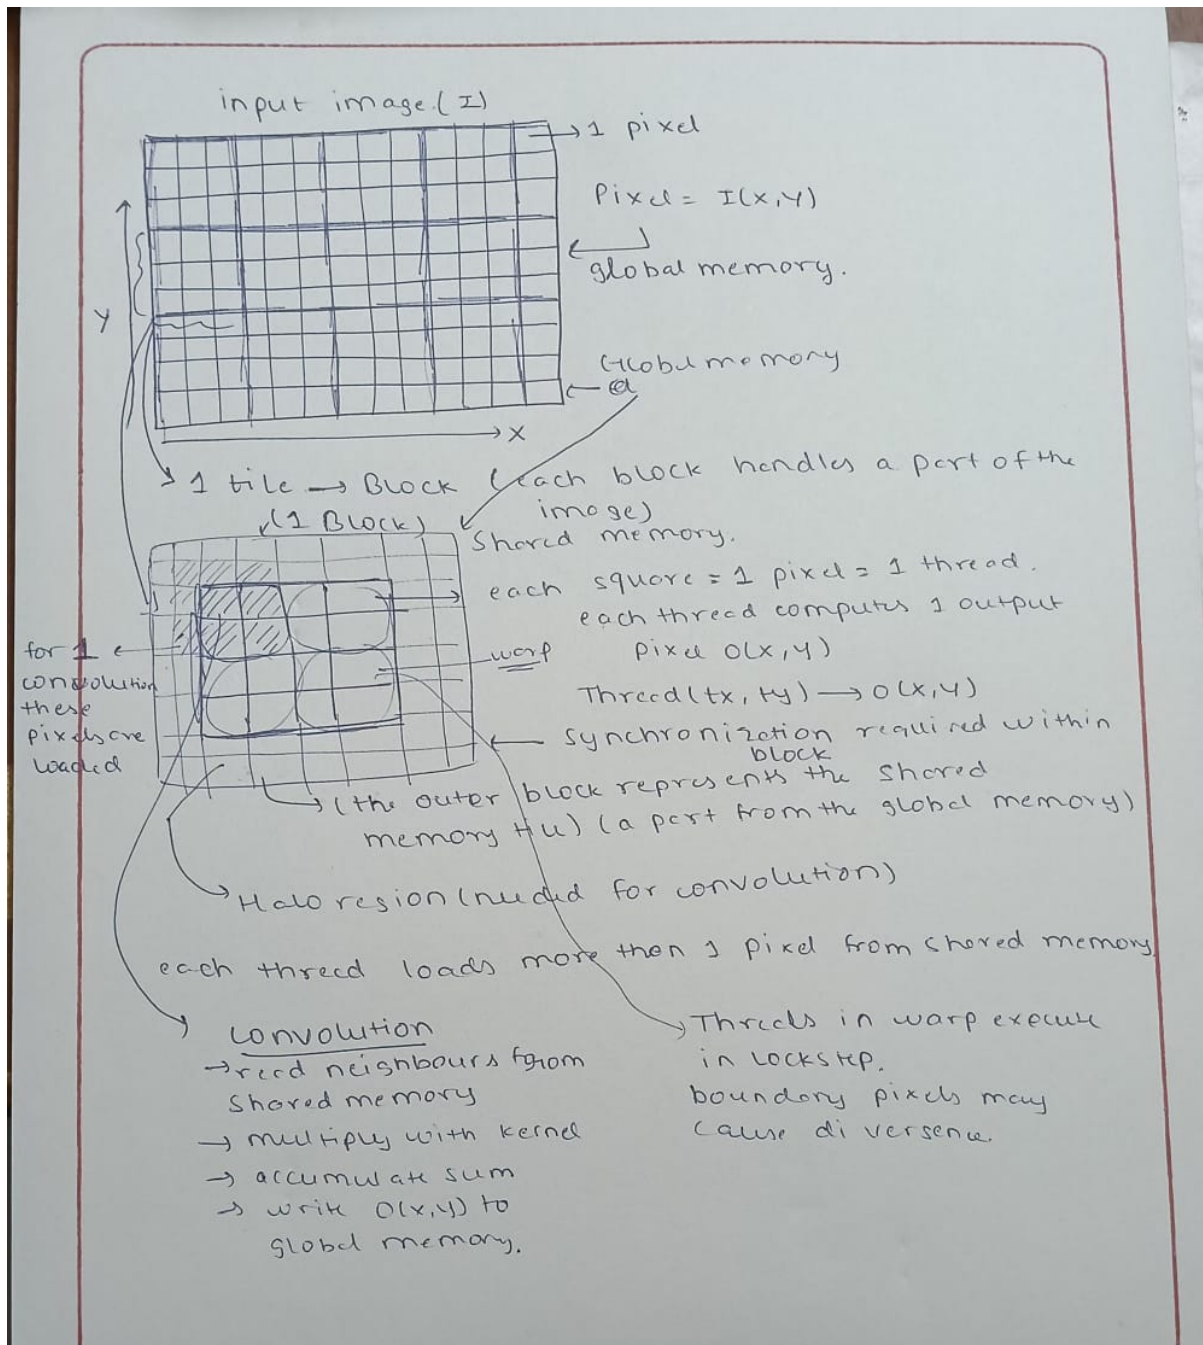 input image (I)
→ 1 pixel
Pixel = I(x,y)
global memory.
y
Global memory
→ x
→ 1 tile → Block (each block handles a part of the
image)
(1 Block)
Shared memory.
each square = 1 pixel = 1 thread.
each thread computes 1 output
pixel O(x,y)
for 1
convolution
these
pixels are
loaded
warp
Thread(tx, ty) → O(x,y)
synchronization required within
block
(the outer block represents the shared
memory) (a part from the global memory)
Halo region (needed for convolution)
each thread loads more than 1 pixel from shared memory.
convolution
→ read neighbours from
shared memory
→ multiply with kernel
→ accumulate sum
→ write O(x,y) to
global memory.
Threads in warp execute
in lockstep.
boundary pixels may
cause divergence.